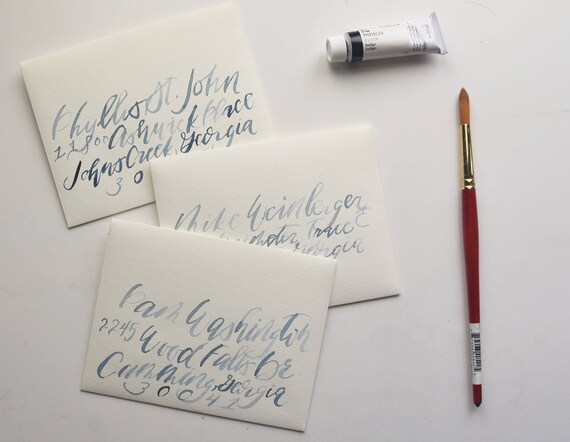 Phyllis St. John
11800 Ashwick Place
Johns Creek, Georgia
3 0
Mike Weinberger
Trace
Georgia
Pam Washington
2245 Wood Falls Dr
Cumming, Georgia
3 0 0 4 1
INDIGO